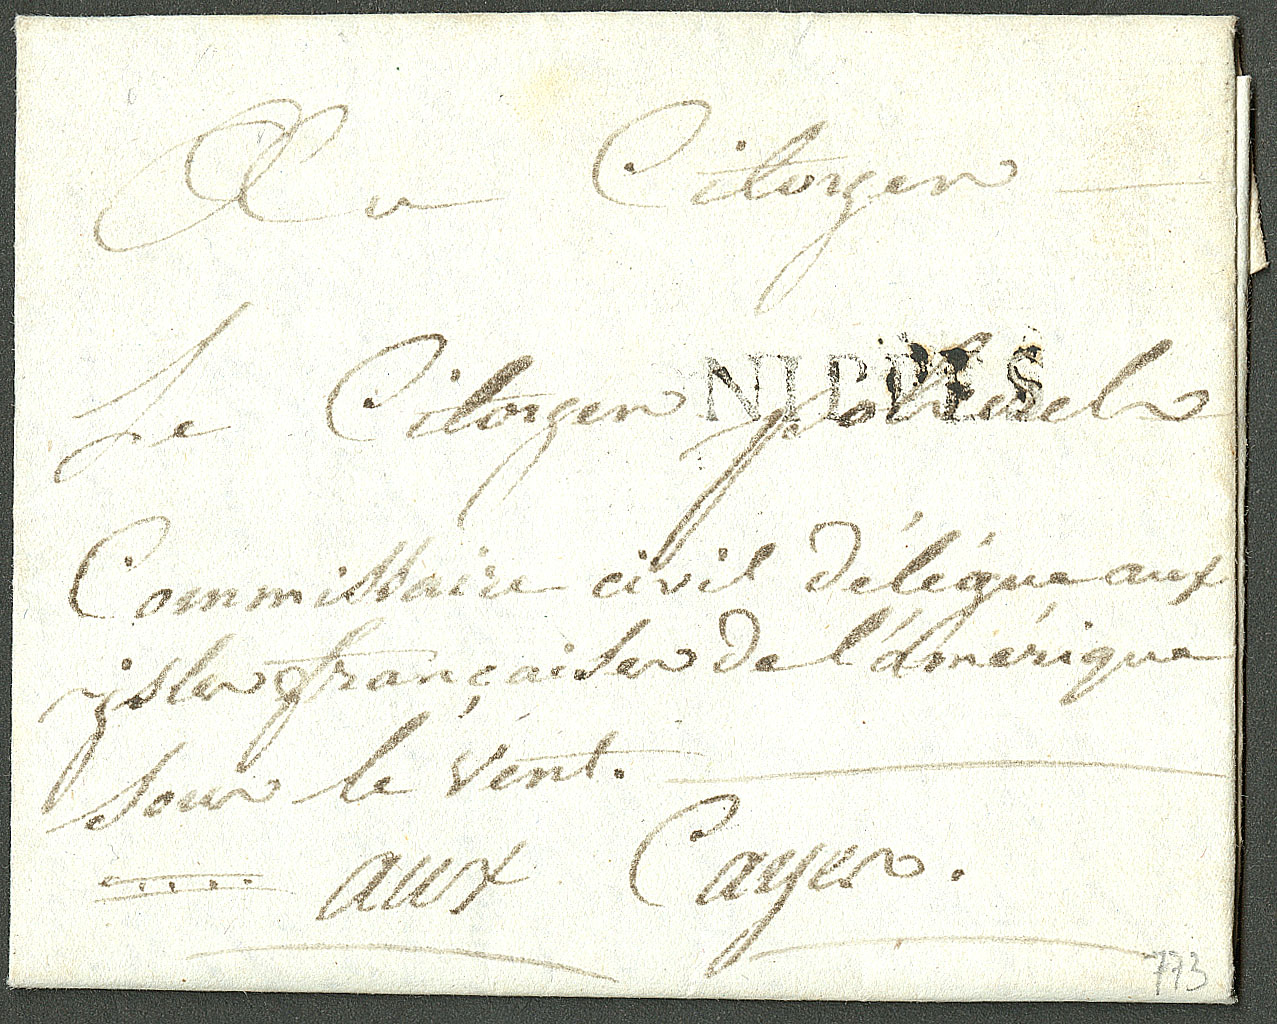 Au Citoyen
Le Citoyen polverel
NIPPES
Commissaire civil délégué aux
isles françaises de l'amérique
sous le vent.
aux Cayes.
773